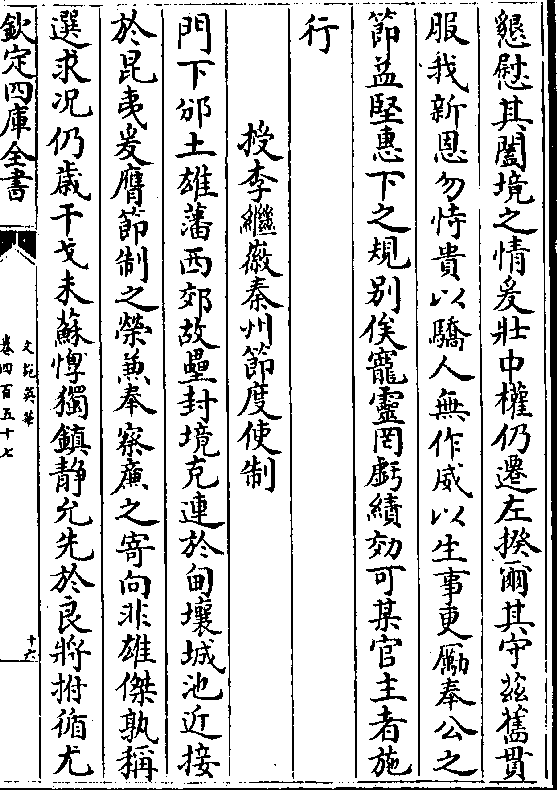 懇慰其闔境之情爰壯中權仍遷左揆爾其守茲舊貫
服我新恩勿恃貴以驕人無作威以生事更勵奉公之
節益堅惠下之規别俟寵靈罔虧績効可某官主者施
行
授李繼徽秦州節度使制
門下邠土雄藩西郊故壘封境克連於甸壤城池近接
於昆夷爰膺節制之榮兼奉察亷之寄向非雄傑孰稱
選求况仍歲干戈未蘇惸獨鎮静允先於良將拊循尤
欽定四庫全書
文苑英華
卷四百五十七
十六